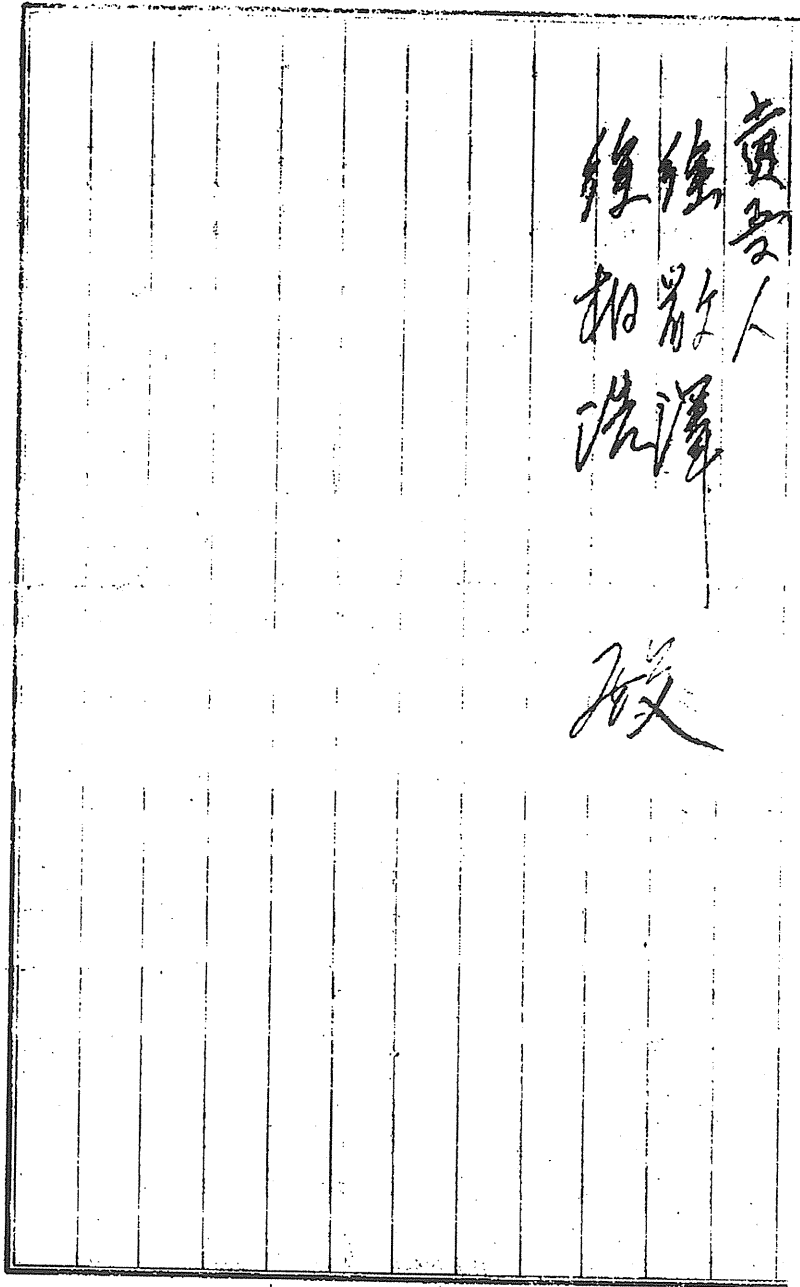 賣受人
徐敬澤
徐相浩
殿